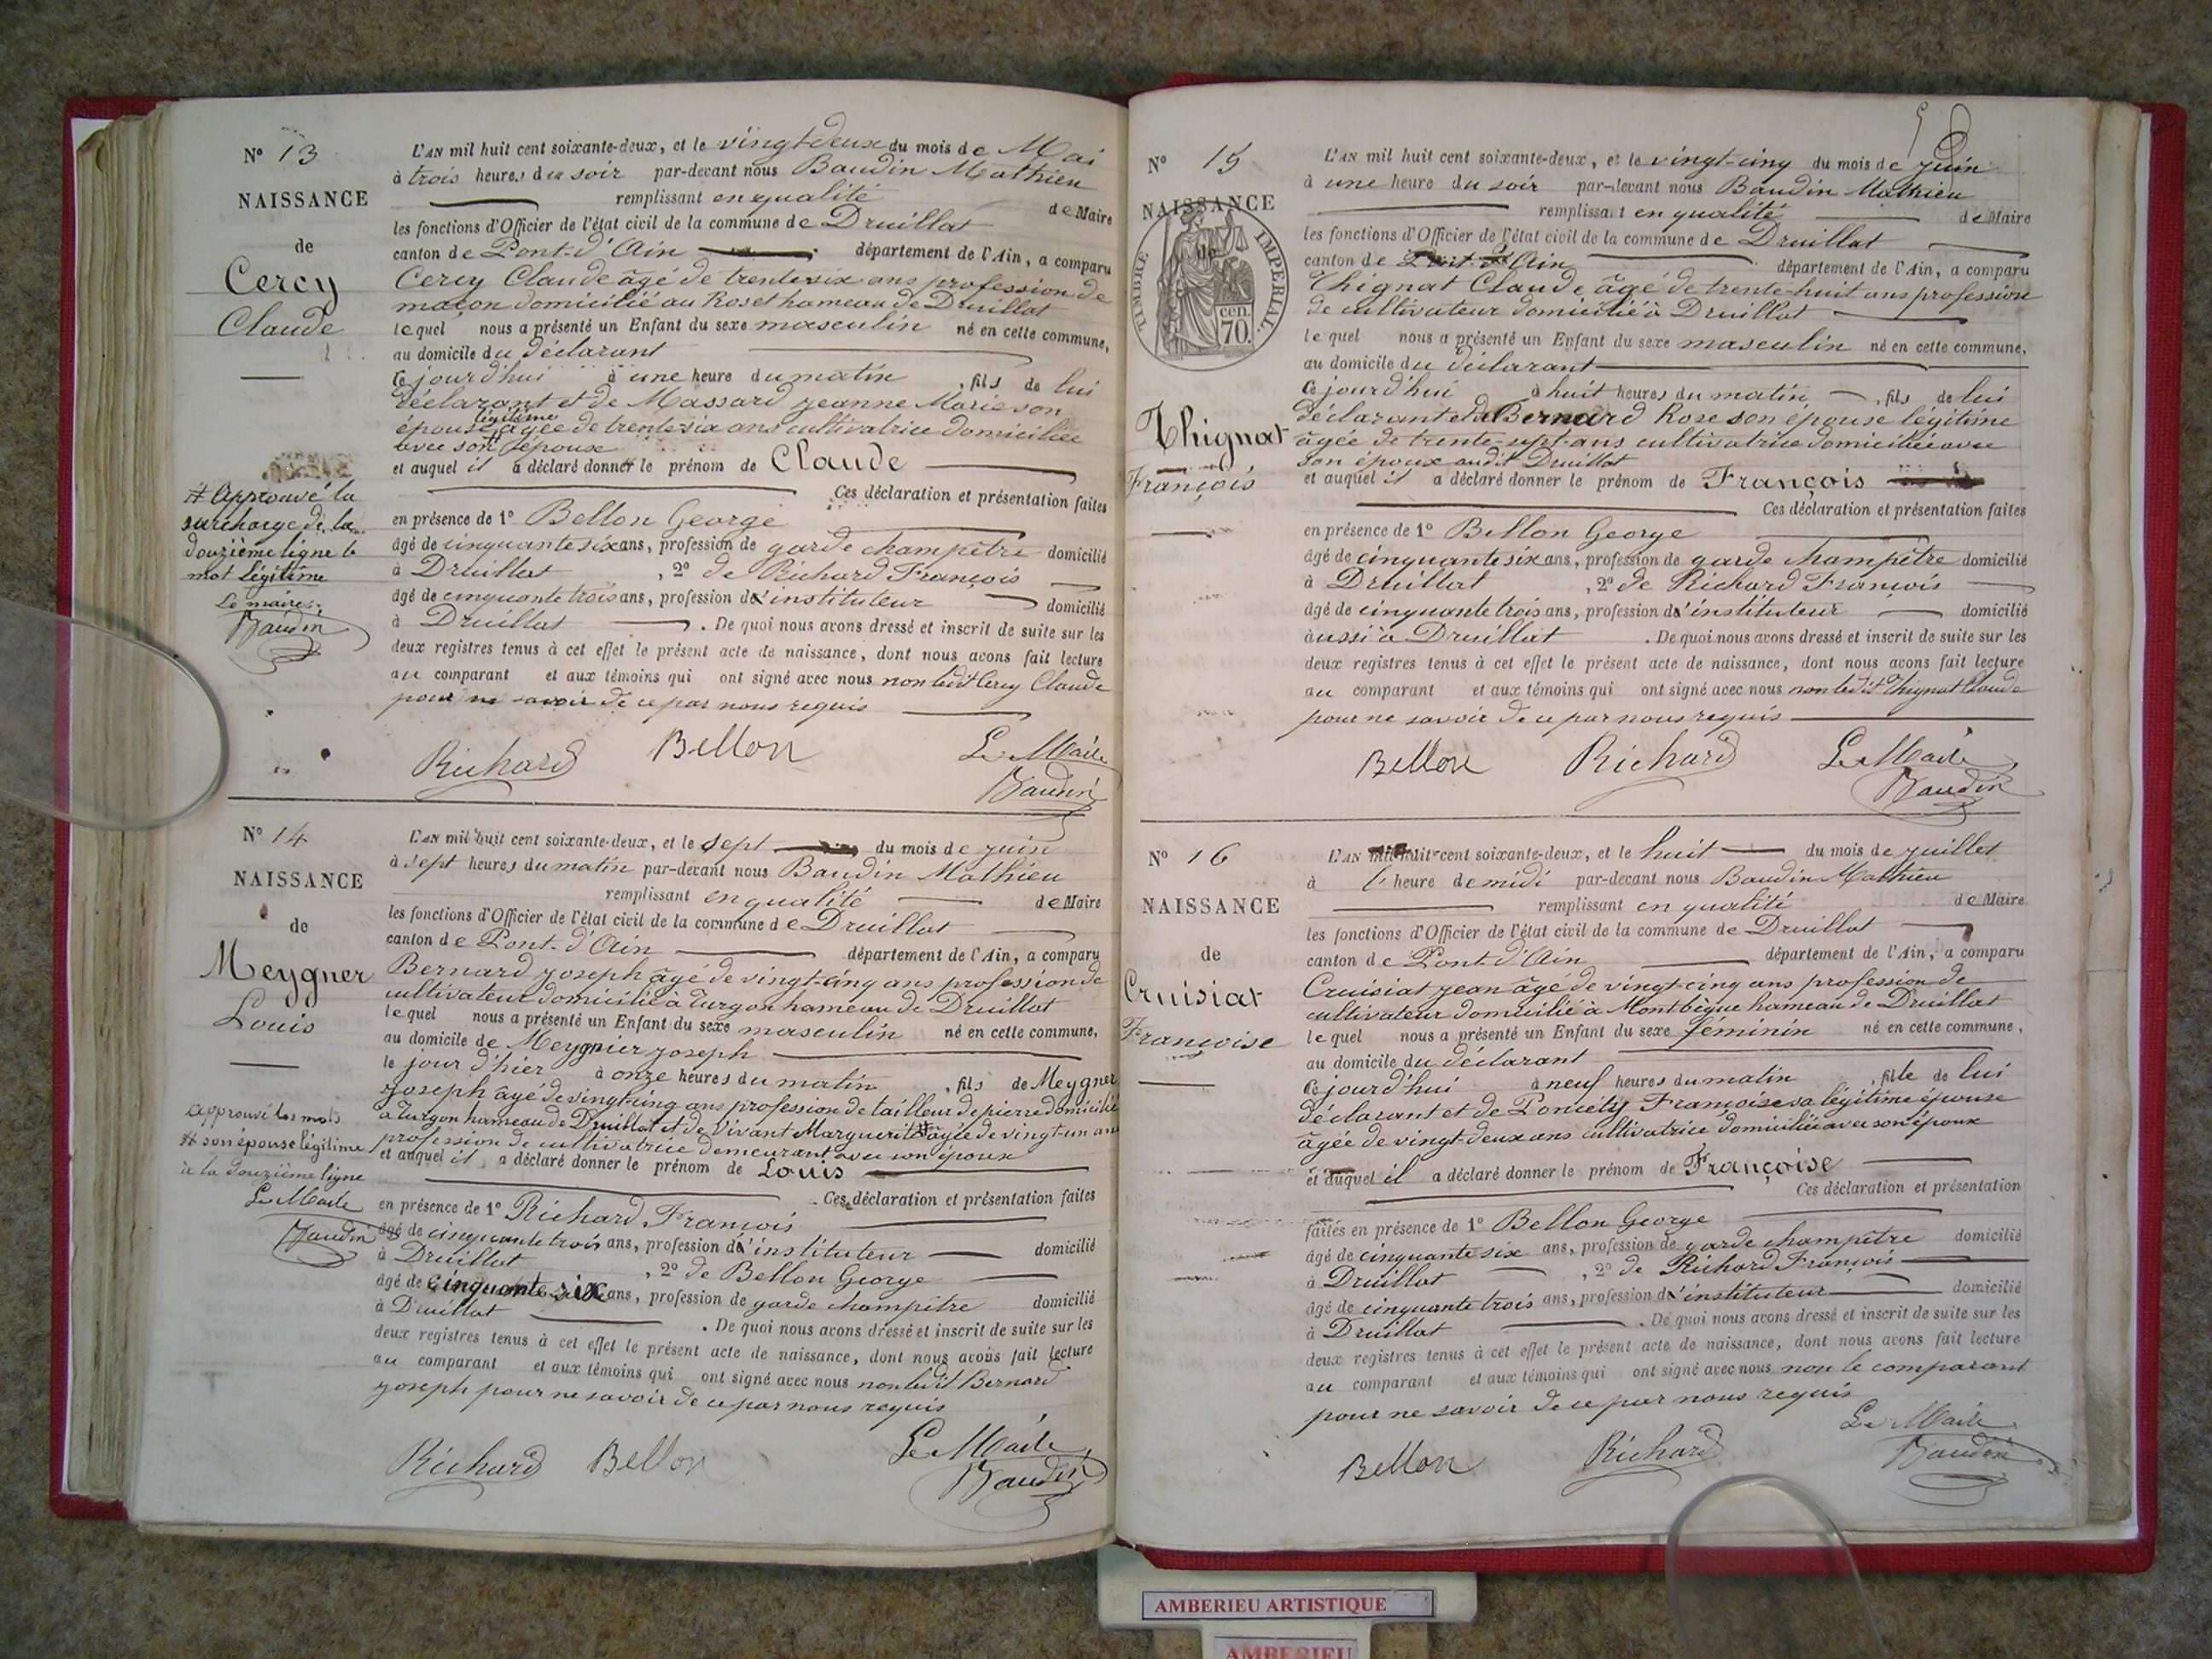 Nº 13
NAISSANCE
de
Cercy
Claude
L'AN mil huit cent soixante-deux, et le vingt-deux du mois de Mai
à trois heures du soir par-devant nous Baudin Mathieu
remplissant en qualité de Maire
les fonctions d'Officier de l'état civil de la commune de Druillat
canton de Pont-d'Ain département de l'Ain, a comparu
Cercy Claude âgé de trente six ans profession de
maçon domicilié au Roset hameau de Druillat
lequel nous a présenté un Enfant du sexe masculin né en cette commune,
au domicile du déclarant
Ce jourd'hui à une heure du matin, fils de lui
déclarant et de Massard jeanne Marie son
légitime
épouse âgée de trente-six ans cultivatrice domiciliée
avec son époux
et auquel il a déclaré donner le prénom de Claude
Ces déclaration et présentation faites
en présence de 1º Bellon George
âgé de cinquante six ans, profession de garde champêtre domicilié
à Druillat, 2º de Richard François
âgé de cinquante trois ans, profession d'instituteur domicilié
à Druillat. De quoi nous avons dressé et inscrit de suite sur les
deux registres tenus à cet effet le présent acte de naissance, dont nous avons fait lecture
au comparant et aux témoins qui ont signé avec nous non ledit Cercy Claude
pour ne savoir de ce par nous requis
Richard Bellon Le Maire
Baudin
# Approuvé la
surcharge de la
douzième ligne le
mot légitime
Le maire
Baudin
Nº 14
NAISSANCE
de
Meygner
Louis
L'AN mil huit cent soixante-deux, et le sept du mois de juin
à sept heures du matin par-devant nous Baudin Mathieu
remplissant en qualité de Maire
les fonctions d'Officier de l'état civil de la commune de Druillat
canton de Pont-d'Ain département de l'Ain, a comparu
Bernard joseph âgé de vingt-cinq ans profession de
cultivateur domicilié à Turgon hameau de Druillat
lequel nous a présenté un Enfant du sexe masculin né en cette commune,
au domicile de Meygnier joseph
le jour d'hier à onze heures du matin, fils de Meygner
joseph âgé de vingt-cinq ans profession de tailleur de pierre domicilié
à Turgon hameau de Druillat et de Vivant Marguerite # âgée de vingt-un ans
profession de cultivatrice demeurant avec son époux
et auquel il a déclaré donner le prénom de Louis
Ces déclaration et présentation faites
en présence de 1º Richard François
âgé de cinquante trois ans, profession d'instituteur domicilié
à Druillat, 2º de Bellon George
âgé de cinquante six ans, profession de garde champêtre domicilié
à Druillat. De quoi nous avons dressé et inscrit de suite sur les
deux registres tenus à cet effet le présent acte de naissance, dont nous avons fait lecture
au comparant et aux témoins qui ont signé avec nous non ledit Bernard
joseph pour ne savoir de ce par nous requis
Richard Bellon Le Maire
Baudin
approuvé les mots
# son épouse légitime
à la douzième ligne
Le Maire
Baudin
Nº 15
NAISSANCE
de
TIMBRE IMPERIAL
70 cen.
Thignat
François
L'AN mil huit cent soixante-deux, et le vingt-cinq du mois de juin
à une heure du soir par-devant nous Baudin Mathieu
remplissant en qualité de Maire
les fonctions d'Officier de l'état civil de la commune de Druillat
canton de Pont-d'Ain département de l'Ain, a comparu
Thignat Claude âgé de trente-huit ans profession
de cultivateur domicilié à Druillat
lequel nous a présenté un Enfant du sexe masculin né en cette commune,
au domicile du déclarant
Ce jourd'hui à huit heures du matin, fils de lui
déclarant et de Bernard Rose son épouse légitime
âgée de trente-sept ans cultivatrice domiciliée avec
son époux audit Druillat
et auquel il a déclaré donner le prénom de François
Ces déclaration et présentation faites
en présence de 1º Bellon George
âgé de cinquante six ans, profession de garde champêtre domicilié
à Druillat, 2º de Richard François
âgé de cinquante trois ans, profession d'instituteur domicilié
aussi à Druillat. De quoi nous avons dressé et inscrit de suite sur les
deux registres tenus à cet effet le présent acte de naissance, dont nous avons fait lecture
au comparant et aux témoins qui ont signé avec nous non ledit Thignat Claude
pour ne savoir de ce par nous requis
Bellon Richard Le Maire
Baudin
Nº 16
NAISSANCE
de
Cruisiat
Françoise
L'AN mil huit cent soixante-deux, et le huit du mois de juillet
à l'heure de midi par-devant nous Baudin Mathieu
remplissant en qualité de Maire
les fonctions d'Officier de l'état civil de la commune de Druillat
canton de Pont-d'Ain département de l'Ain, a comparu
Cruisiat jean âgé de vingt-cinq ans profession de
cultivateur domicilié à Montbègue hameau de Druillat
lequel nous a présenté un Enfant du sexe féminin né en cette commune,
au domicile du déclarant
Ce jourd'hui à neuf heures du matin, fille de lui
déclarant et de Poncéty Françoise sa légitime épouse
âgée de vingt-deux ans cultivatrice domiciliée avec son époux
et auquel il a déclaré donner le prénom de Françoise
Ces déclaration et présentation
faites en présence de 1º Bellon George
âgé de cinquante six ans, profession de garde champêtre domicilié
à Druillat, 2º de Richard François
âgé de cinquante trois ans, profession d'instituteur domicilié
à Druillat. De quoi nous avons dressé et inscrit de suite sur les
deux registres tenus à cet effet le présent acte de naissance, dont nous avons fait lecture
au comparant et aux témoins qui ont signé avec nous non le comparant
pour ne savoir de ce par nous requis
Bellon Richard Le Maire
Baudin
AMBERIEU ARTISTIQUE
AMBERIEU